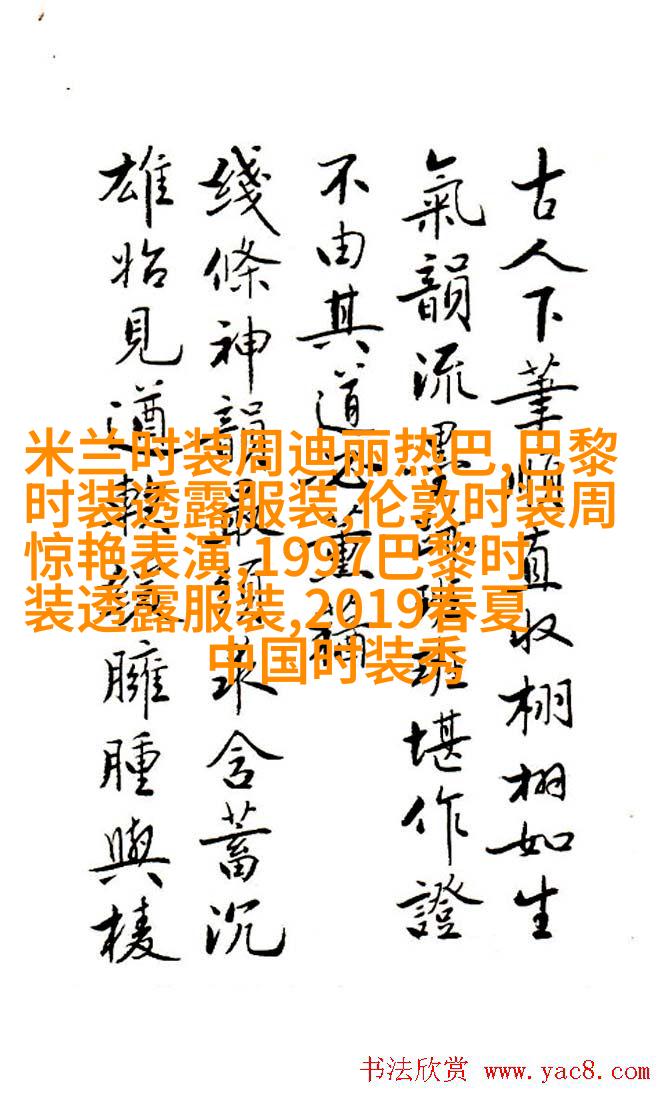 古人下筆順直收栩栩如生
氣韻流墨斑堪作證
不由其道
綫條神韻最求含蓄沉
雄始見遒臃腫與棱
米兰时装周迪丽热巴,巴黎
时装透露服装,伦敦时装周
惊艳表演,1997巴黎时
装透露服装,2019春夏
中国时装秀
书法欣赏 www.yac8.com